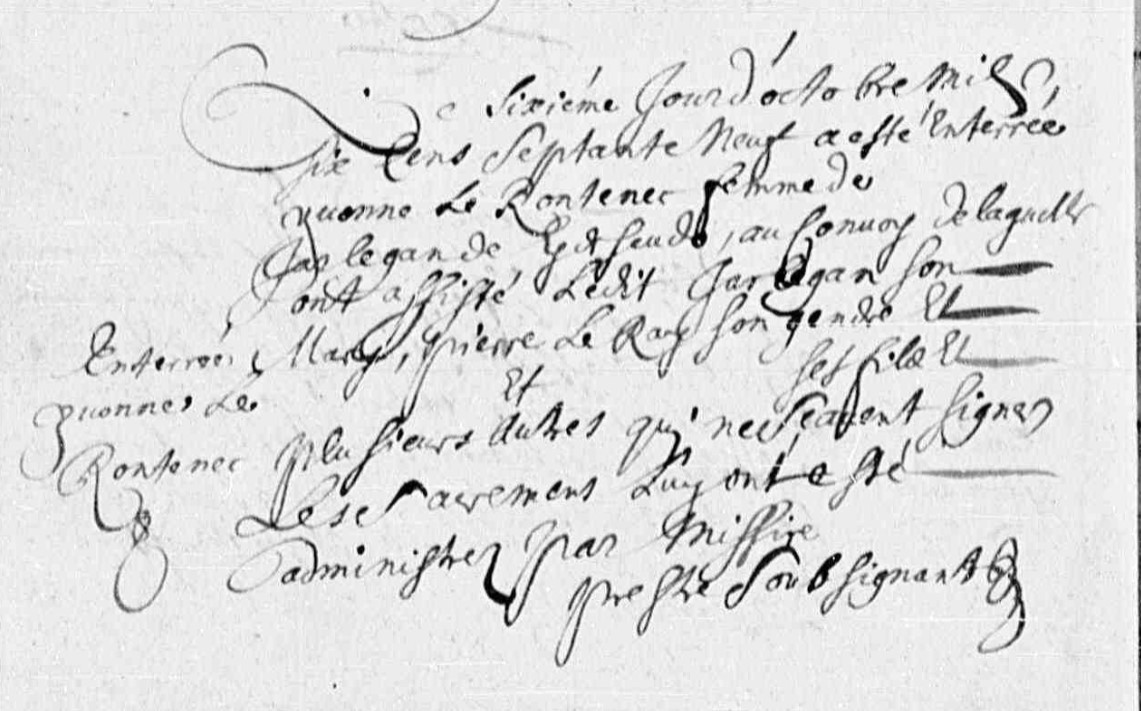 Le sixiéme Jour d'octobre Mil
six Cens Septante Neuf a esté Enterrée
yuonne Le Rontenec femme de
Jac le gan de, au Conuoy de laquelle
ont assisté Ledit Jac le gan son
Mary, pierre Le Ray son gendre Et
ses filz Et
plusieurs Et Autres qui ne sçauent signer
Les Sacremens Luy ont esté
administrez par Missire
prestre Soubsignant
Enterrée
yuonne Le
Rontenec